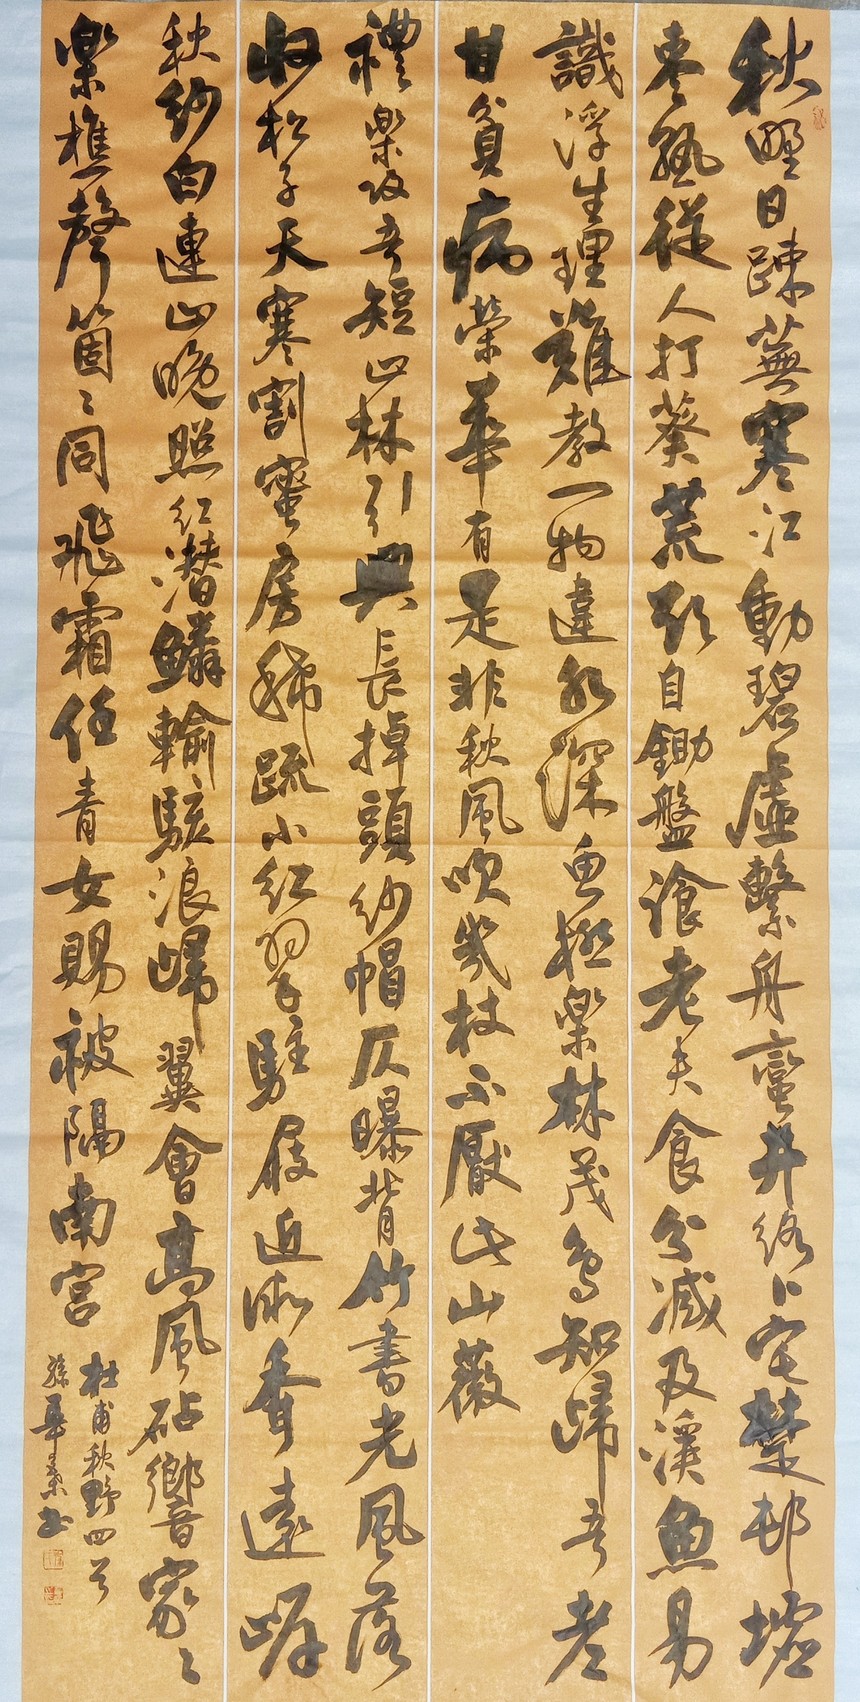 秋野日疎蕪寒江動碧虛繫舟蠻井絡卜宅楚邨墟
棗熟從人打葵荒欲自鋤盤飧老夫食分減及溪魚易
識浮生理難教一物違水深魚極樂林茂鳥知歸吾老
甘貧病榮華有是非秋風吹几杖不厭此山薇
禮樂攻吾短山林引興長掉頭紗帽仄曝背竹書光風落
收松子天寒割蜜房稀疏小紅翠駐屐近微香遠岸
秋紗白連山晚照紅潛鱗輸駭浪歸翼會高風砧響家々
樂樵聲箇々同飛霜任青女賜被隔南宮
杜甫秋野四首
孫華 书